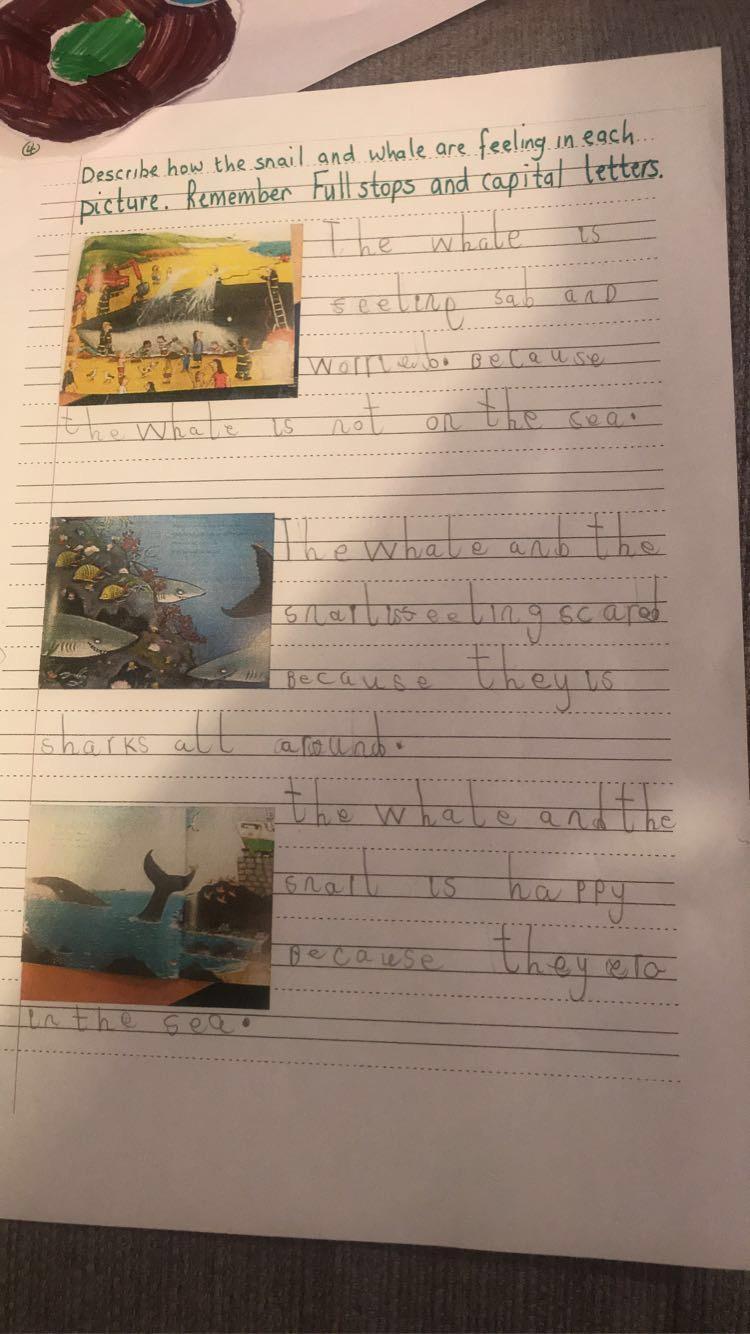 4
Describe how the snail and whale are feeling in each
picture. Remember Full stops and capital letters.
The whale is
seeling sab and
worrieb. Because
the whale is not on the sea.
The whale anb the
snail is seeling scared
Because they is
sharks all arounb.
the whale and the
snail is happy
Because they ero
in the sea.